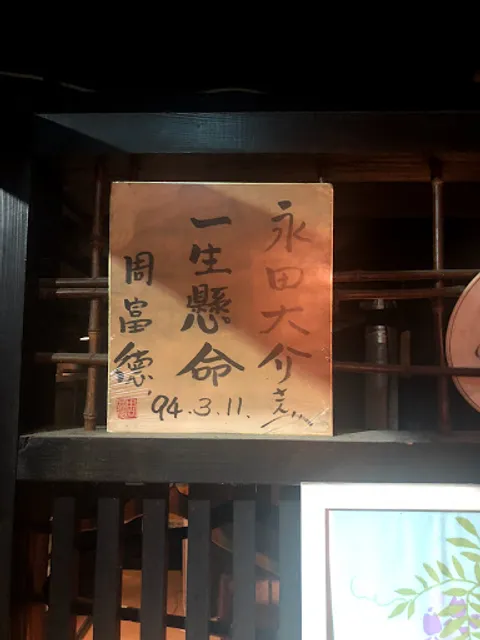 永田大介さん
一生懸命
周富德
94.3.11.